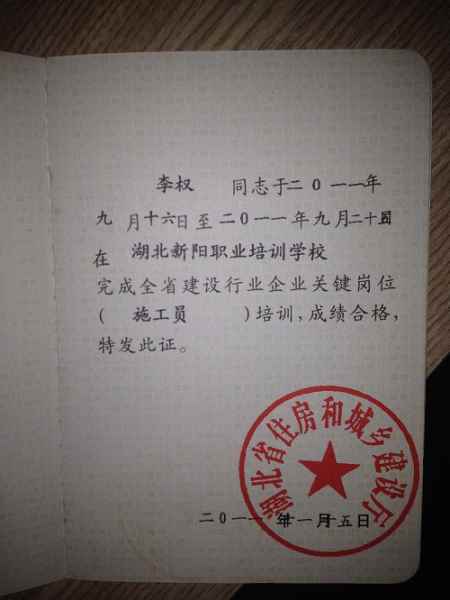 李权 同志于二〇一一年
九月十六日至二〇一一年九月二十五日
在 湖北新阳职业培训学校
完成全省建设行业企业关键岗位
( 施工员 )培训,成绩合格,
特发此证。
湖北省住房和城乡建设厅
二〇一一年十一月十五日